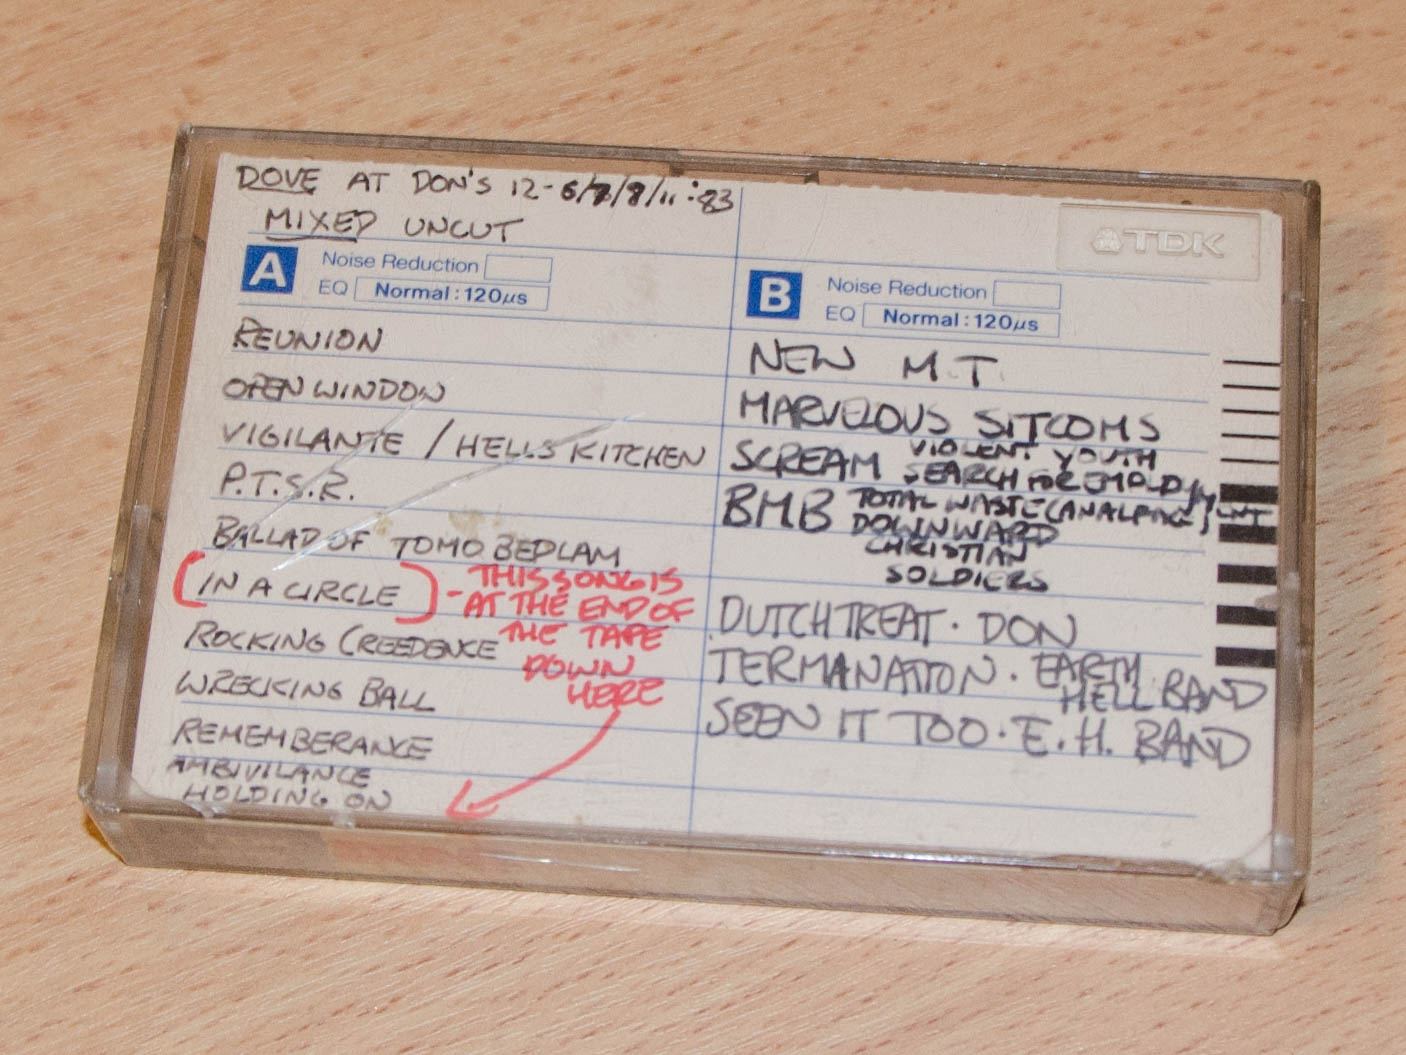 DOVE AT DON'S 12-6/7/8/11:83
MIXED UNCUT
TDK
A
Noise Reduction
EQ Normal:120µs
REUNION
OPEN WINDOW
VIGILANTE / HELLS KITCHEN
P.T.S.R.
BALLAD OF TOMO BEDLAM
(IN A CIRCLE) - THIS SONG IS
AT THE END OF
THE TAPE
DOWN
HERE
ROCKING CREEDENCE
WRECKING BALL
REMEMBERANCE
AMBIVILANCE
HOLDING ON
B
Noise Reduction
EQ Normal:120µs
NEW M.T.
MARVELOUS SITCOMS
SCREAM VIOLENT YOUTH
SEARCH FOR EMPLOYMENT
BMB TOTAL WASTE
DOWNWARD
CHRISTIAN
SOLDIERS
DUTCH TREAT · DON
TERMANATION · EARTH
HELL BAND
SEEN IT TOO · E.H. BAND